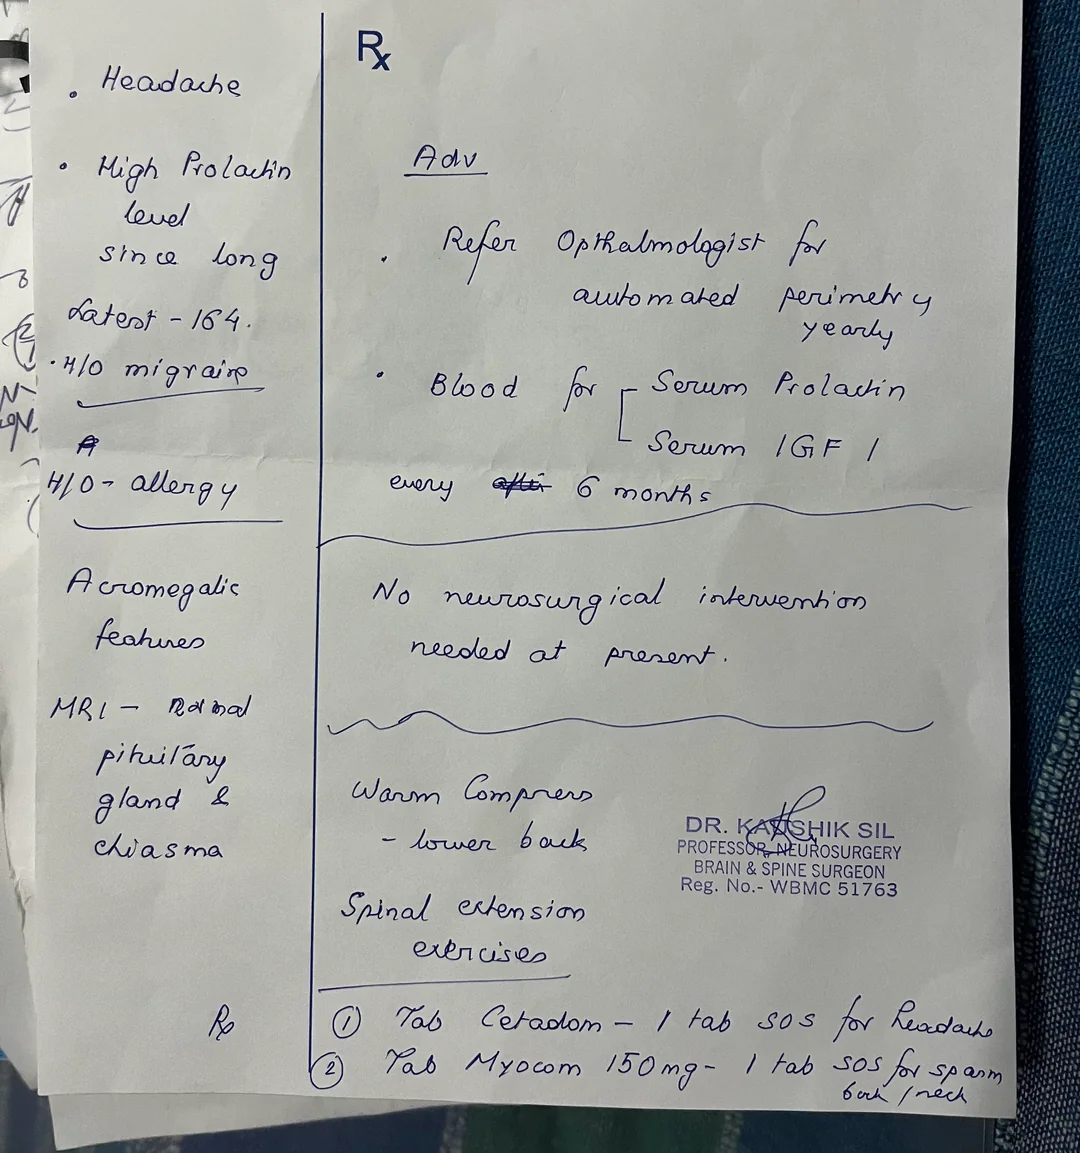 • Headache
• High Prolactin
level
since long
Latest - 164.
• H/O migraine
H/O - allergy
Acromegalic
features
MRI - normal
pituitary
gland &
chiasma
Rx
Rx
Adv
• Refer Opthalmologist for
automated perimetry
yearly
• Blood for Serum Prolactin
Serum IGF 1
every after 6 months
No neurosurgical intervention
needed at present.
Warm Compress
- lower back
Spinal extension
exercises
DR. KAUSHIK SIL
PROFESSOR, NEUROSURGERY
BRAIN & SPINE SURGEON
Reg. No.- WBMC 51763
① Tab Cetadom - 1 tab SOS for headache
② Tab Myocom 150mg - 1 tab SOS for spasm
back / neck